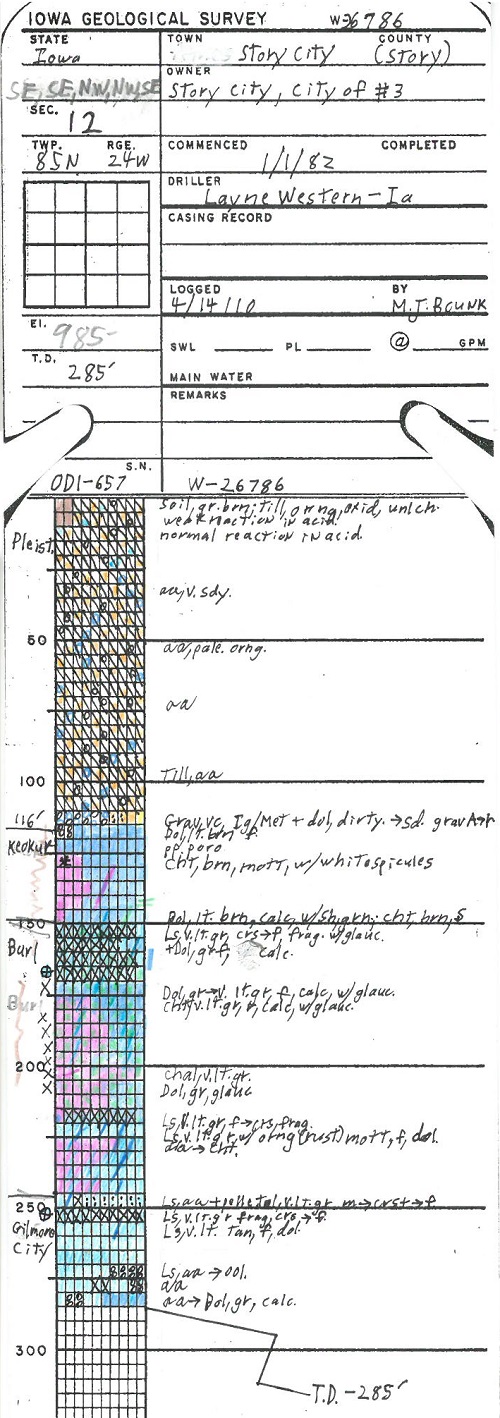 IOWA GEOLOGICAL SURVEY W-26786
STATE
Iowa
TOWN
Story City
COUNTY
(Story)
OWNER
Story City, City of #3
SE, SE, NW, NW, SE
SEC.
12
TWP. RGE.
85N 24W
COMMENCED COMPLETED
1/1/82
DRILLER
Layne Western-Ia
CASING RECORD
LOGGED BY
4/14/10 M.J. BOUNK
El.
985
T.D.
285'
SWL PL @ GPM
MAIN WATER
REMARKS
S.N.
ODI-657 W-26786
Soil, gr. brn; till, orng, oxid, unlch.
weak reaction in acid
normal reaction in acid
Pleist.
aa, v. sdy.
50
aa, pale. orng.
aa
Till, aa
100
116'
Grav, vc, Ig/Met + dol, dirty. → sd. grav
Dol, lt. brn f.
pp. poro
Keokuk
Cht, brn, mott, w/white spicules
Dol, lt. brn, calc, w/Sh, grn; cht, brn, S
150
Ls, v. lt. gr, crs→f, frag. w/glauc.
+Dol, gr f, calc.
Burl
Dol, gr→v. lt. gr, f, calc, w/glauc.
Cht, v. lt. gr, calc, w/glauc.
Burl
200
Chal, v. lt. gr.
Dol, gr, glauc
Ls, v. lt. gr, f→crs, frag.
Ls, v. lt. gr, w/ orng (rust) mott, f, dol.
aa→Cht.
250
Ls, aa + pelletal, v. lt. gr m→crs→f
Ls, v. lt. gr frag, crs→f.
Gilmore
City
Ls, v. lt. tan, f, dol
Ls, aa→ool.
aa
aa→Dol, gr, calc.
300
T.D. -285'